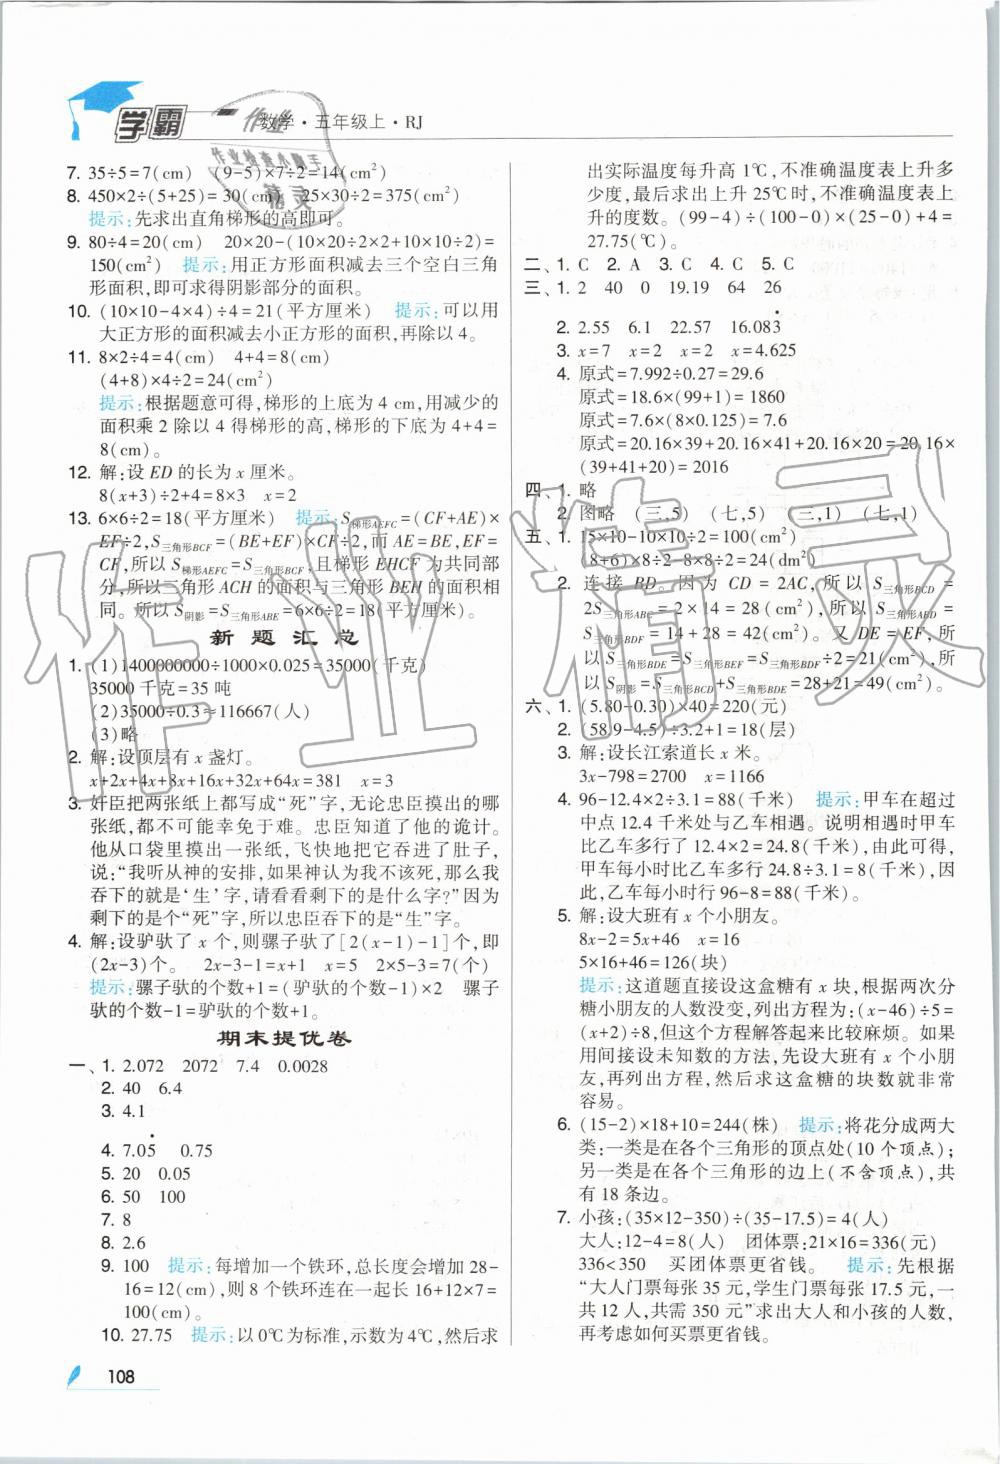 学霸 数学·五年级上·RJ
7. 35÷5=7(cm) (9-5)×7÷2=14(cm²)
8. 450×2÷(5+25)=30(cm) 25×30÷2=375(cm²)
提示:先求出直角梯形的高即可。
9. 80÷4=20(cm) 20×20-(10×20÷2×2+10×10÷2)=
150(cm²) 提示:用正方形面积减去三个空白三角
形面积,即可求得阴影部分的面积。
10. (10×10-4×4)÷4=21(平方厘米) 提示:可以用
大正方形的面积减去小正方形的面积,再除以4。
11. 8×2÷4=4(cm) 4+4=8(cm)
(4+8)×4÷2=24(cm²)
提示:根据题意可得,梯形的上底为4 cm,用减少的
面积乘2除以4得梯形的高,梯形的下底为4+4=
8(cm)。
12. 解:设ED的长为x厘米。
8(x+3)÷2+4=8×3 x=2
13. 6×6÷2=18(平方厘米) 提示:S梯形AEFC=(CF+AE)×
EF÷2,S三角形BCF=(BE+EF)×CF÷2,而AE=BE,EF=
CF,所以S梯形AEFC=S三角形BCF,且梯形EHCF为共同部
分,所以三角形ACH的面积与三角形BEH的面积相
同。所以S阴影=S三角形ABE=6×6÷2=18(平方厘米)。
新题汇总
1. (1)1400000000÷1000×0.025=35000(千克)
35000千克=35吨
(2)35000÷0.3≈116667(人)
(3)略
2. 解:设顶层有x盏灯。
x+2x+4x+8x+16x+32x+64x=381 x=3
3. 奸臣把两张纸上都写成“死”字,无论忠臣摸出的哪
张纸,都不可能幸免于难。忠臣知道了他的诡计。
他从口袋里摸出一张纸,飞快地把它吞进了肚子,
说:“我听从神的安排,如果神认为我不该死,那么我
吞下的就是‘生’字,请看看剩下的是什么字?”因为
剩下的是个“死”字,所以忠臣吞下的是“生”字。
4. 解:设驴驮了x个,则骡子驮了[2(x-1)-1]个,即
(2x-3)个。 2x-3-1=x+1 x=5 2×5-3=7(个)
提示:骡子驮的个数+1=(驴驮的个数-1)×2 骡子
驮的个数-1=驴驮的个数+1。
期末提优卷
一、1. 2.072 2072 7.4 0.0028
2. 40 6.4
3. 4.1
4. 7.05̇ 0.75
5. 20 0.05
6. 50 100
7. 8
8. 2.6
9. 100 提示:每增加一个铁环,总长度会增加28-
16=12(cm),则8个铁环连在一起长16+12×7=
100(cm)。
10. 27.75 提示:以0℃为标准,示数为4℃,然后求
108
出实际温度每升高1℃,不准确温度表上升多
少度,最后求出上升25℃时,不准确温度表上
升的度数。(99-4)÷(100-0)×(25-0)+4=
27.75(℃)。
二、1. C 2. A 3. C 4. C 5. C
三、1. 2 40 0 19.19 64 26
2. 2.55 6.1 22.57 16.083̇
3. x=7 x=2 x=2 x=4.625
4. 原式=7.992÷0.27=29.6
原式=18.6×(99+1)=1860
原式=7.6×(8×0.125)=7.6
原式=20.16×39+20.16×41+20.16×20=20.16×
(39+41+20)=2016
四、1. 略
2. 图略 (三,5) (七,5) (三,1) (七,1)
五、1. 15×10-10×10÷2=100(cm²)
(8+6)×8÷2-8×8÷2=24(dm²)
2. 连接BD。因为CD=2AC,所以S三角形BCD=
2S三角形ABC=2×14=28(cm²),所以S三角形ABD=
S三角形BDF=14+28=42(cm²)。又DE=EF,所
以S三角形BDE=S三角形BEF=S三角形BDF÷2=21(cm²),所
以S阴影=S三角形BCD+S三角形BDE=28+21=49(cm²)。
六、1. (5.80-0.30)×40=220(元)
2. (58.9-4.5)÷3.2+1=18(层)
3. 解:设长江索道长x米。
3x-798=2700 x=1166
4. 96-12.4×2÷3.1=88(千米) 提示:甲车在超过
中点12.4千米处与乙车相遇。说明相遇时甲车
比乙车多行了12.4×2=24.8(千米),由此可得,
甲车每小时比乙车多行24.8÷3.1=8(千米)。因
此,乙车每小时行96-8=88(千米)。
5. 解:设大班有x个小朋友。
8x-2=5x+46 x=16
5×16+46=126(块)
提示:这道题直接设这盒糖有x块,根据两次分
糖小朋友的人数没变,列出方程为:(x-46)÷5=
(x+2)÷8,但这个方程解答起来比较麻烦。如果
用间接设未知数的方法,先设大班有x个小朋
友,再列出方程,然后求这盒糖的块数就非常
容易。
6. (15-2)×18+10=244(株) 提示:将花分成两大
类:一类是在各个三角形的顶点处(10个顶点);
另一类是在各个三角形的边上(不含顶点),共
有18条边。
7. 小孩:(35×12-350)÷(35-17.5)=4(人)
大人:12-4=8(人) 团体票:21×16=336(元)
336<350 买团体票更省钱。 提示:先根据
“大人门票每张35元,学生门票每张17.5元,一
共12人,共需350元”求出大人和小孩的人数,
再考虑如何买票更省钱。
作业精灵